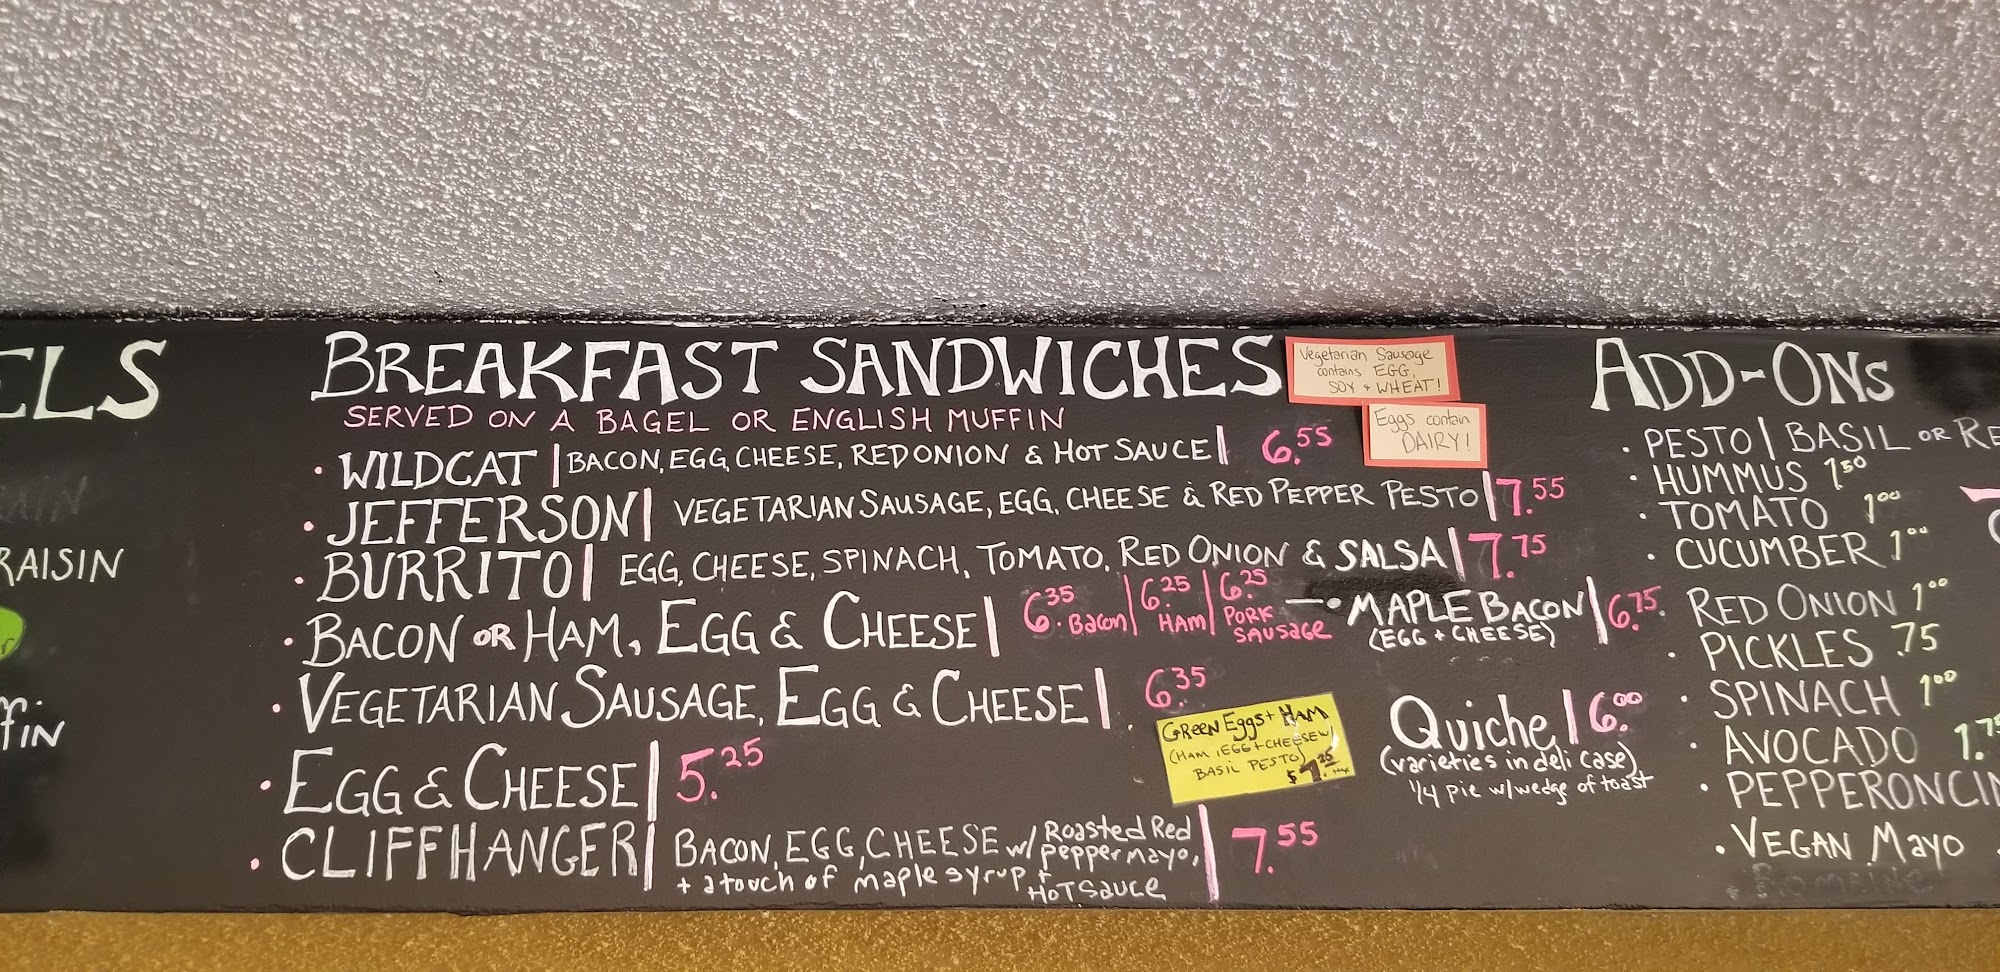 ELS
RAISIN
FFIN
BREAKFAST SANDWICHES
SERVED ON A BAGEL OR ENGLISH MUFFIN
• WILDCAT | BACON, EGG, CHEESE, RED ONION & HOT SAUCE | 6.55
• JEFFERSON | VEGETARIAN SAUSAGE, EGG, CHEESE & RED PEPPER PESTO | 7.55
• BURRITO | EGG, CHEESE, SPINACH, TOMATO, RED ONION & SALSA | 7.75
• BACON OR HAM, EGG & CHEESE | 6.35 Bacon | 6.25 HAM | 6.25 PORK SAUSAGE
MAPLE BACON | 6.75
(EGG + CHEESE)
• VEGETARIAN SAUSAGE, EGG & CHEESE | 6.35
• EGG & CHEESE | 5.25
• CLIFFHANGER | BACON, EGG, CHEESE w/ Roasted Red
pepper mayo,
+ a touch of maple syrup +
HOT SAUCE | 7.55
Vegetarian Sausage
contains EGG,
SOY + WHEAT!
Eggs contain
DAIRY!
GREEN Eggs + HAM
(HAM, EGG + CHEESE W/
BASIL PESTO)
$7.25
Quiche | 6.00
(varieties in deli case)
1/4 pie w/ wedge of toast
ADD-ONS
• PESTO | BASIL OR RE
• HUMMUS 1.50
• TOMATO 1.00
• CUCUMBER 1.00
RED ONION 1.00
• PICKLES .75
• SPINACH 1.00
• AVOCADO 1.75
• PEPPERONCIN
• VEGAN Mayo